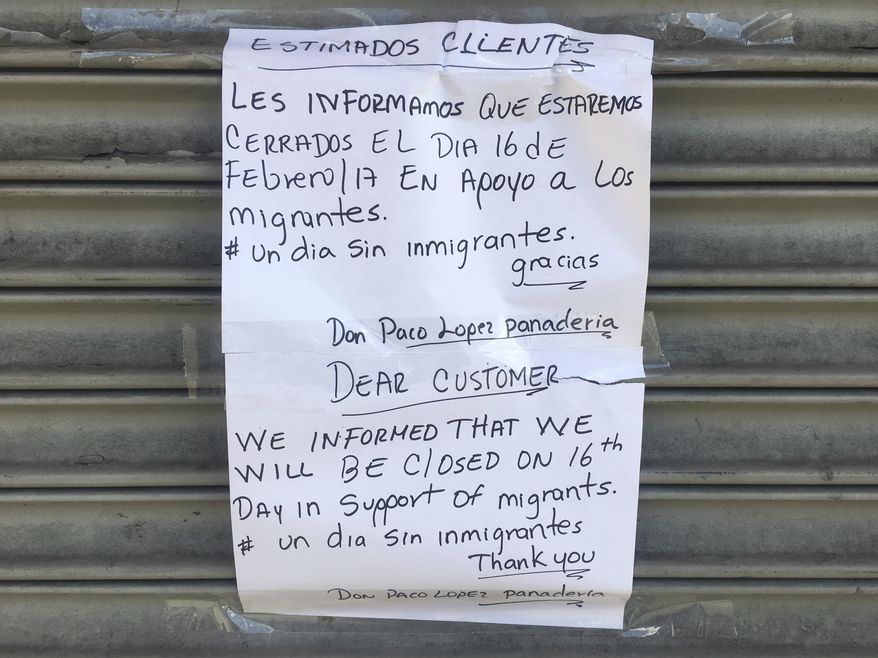 ESTIMADOS CLIENTES
LES INFORMAMOS QUE ESTAREMOS
CERRADOS EL DIA 16 dE
FEbrero/17 EN APOYO a LOS
migrantes.
# un dia sin inmigrantes.
gracias
Don Paco Lopez panaderia
DEAR CUSTOMER
WE INFORMED THAT WE
WILL BE CLOSED ON 16th
DAY IN Support OF migrants.
# un dia sin inmigrantes
Thank you
DON PACO LOPEZ panaderia